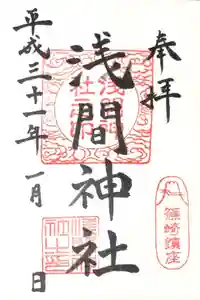 奉拝
浅間神社
平成三十一年一月 日
篠崎鎮座